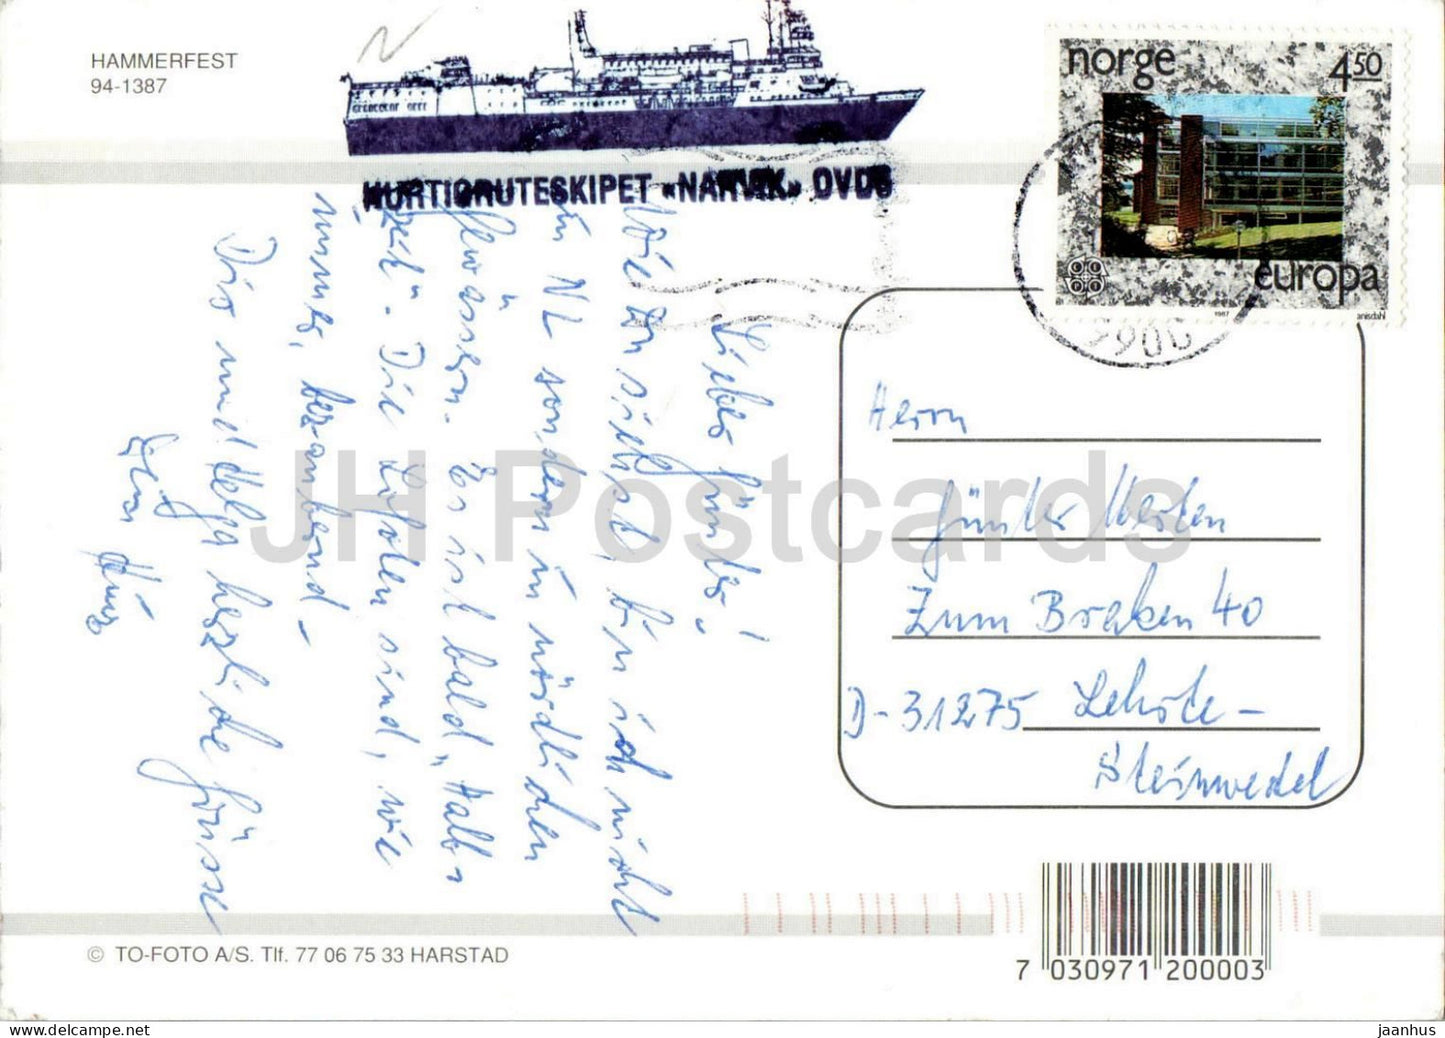 HAMMERFEST
94-1387
HURTIGRUTESKIPET «NARVIK» OVDS
norge 4 50
europa
1987
anisdahl
9900
Lieber Günter!
Wie Du siehst, bin ich nicht
in NL sondern in nördlichen
Gewässern. Es ist bald "Halb-
zeit". Die Lofoten sind, wie
immer, bezaubernd -
Dir und Helga herzliche Grüsse
Herrn
Günter Merten
Zum Braken 40
D-31275 Lehrte-
Steinwedel
JH Postcards
© TO-FOTO A/S. Tlf. 77 06 75 33 HARSTAD
7 030971 200003
jaanhus
www.delcampe.net